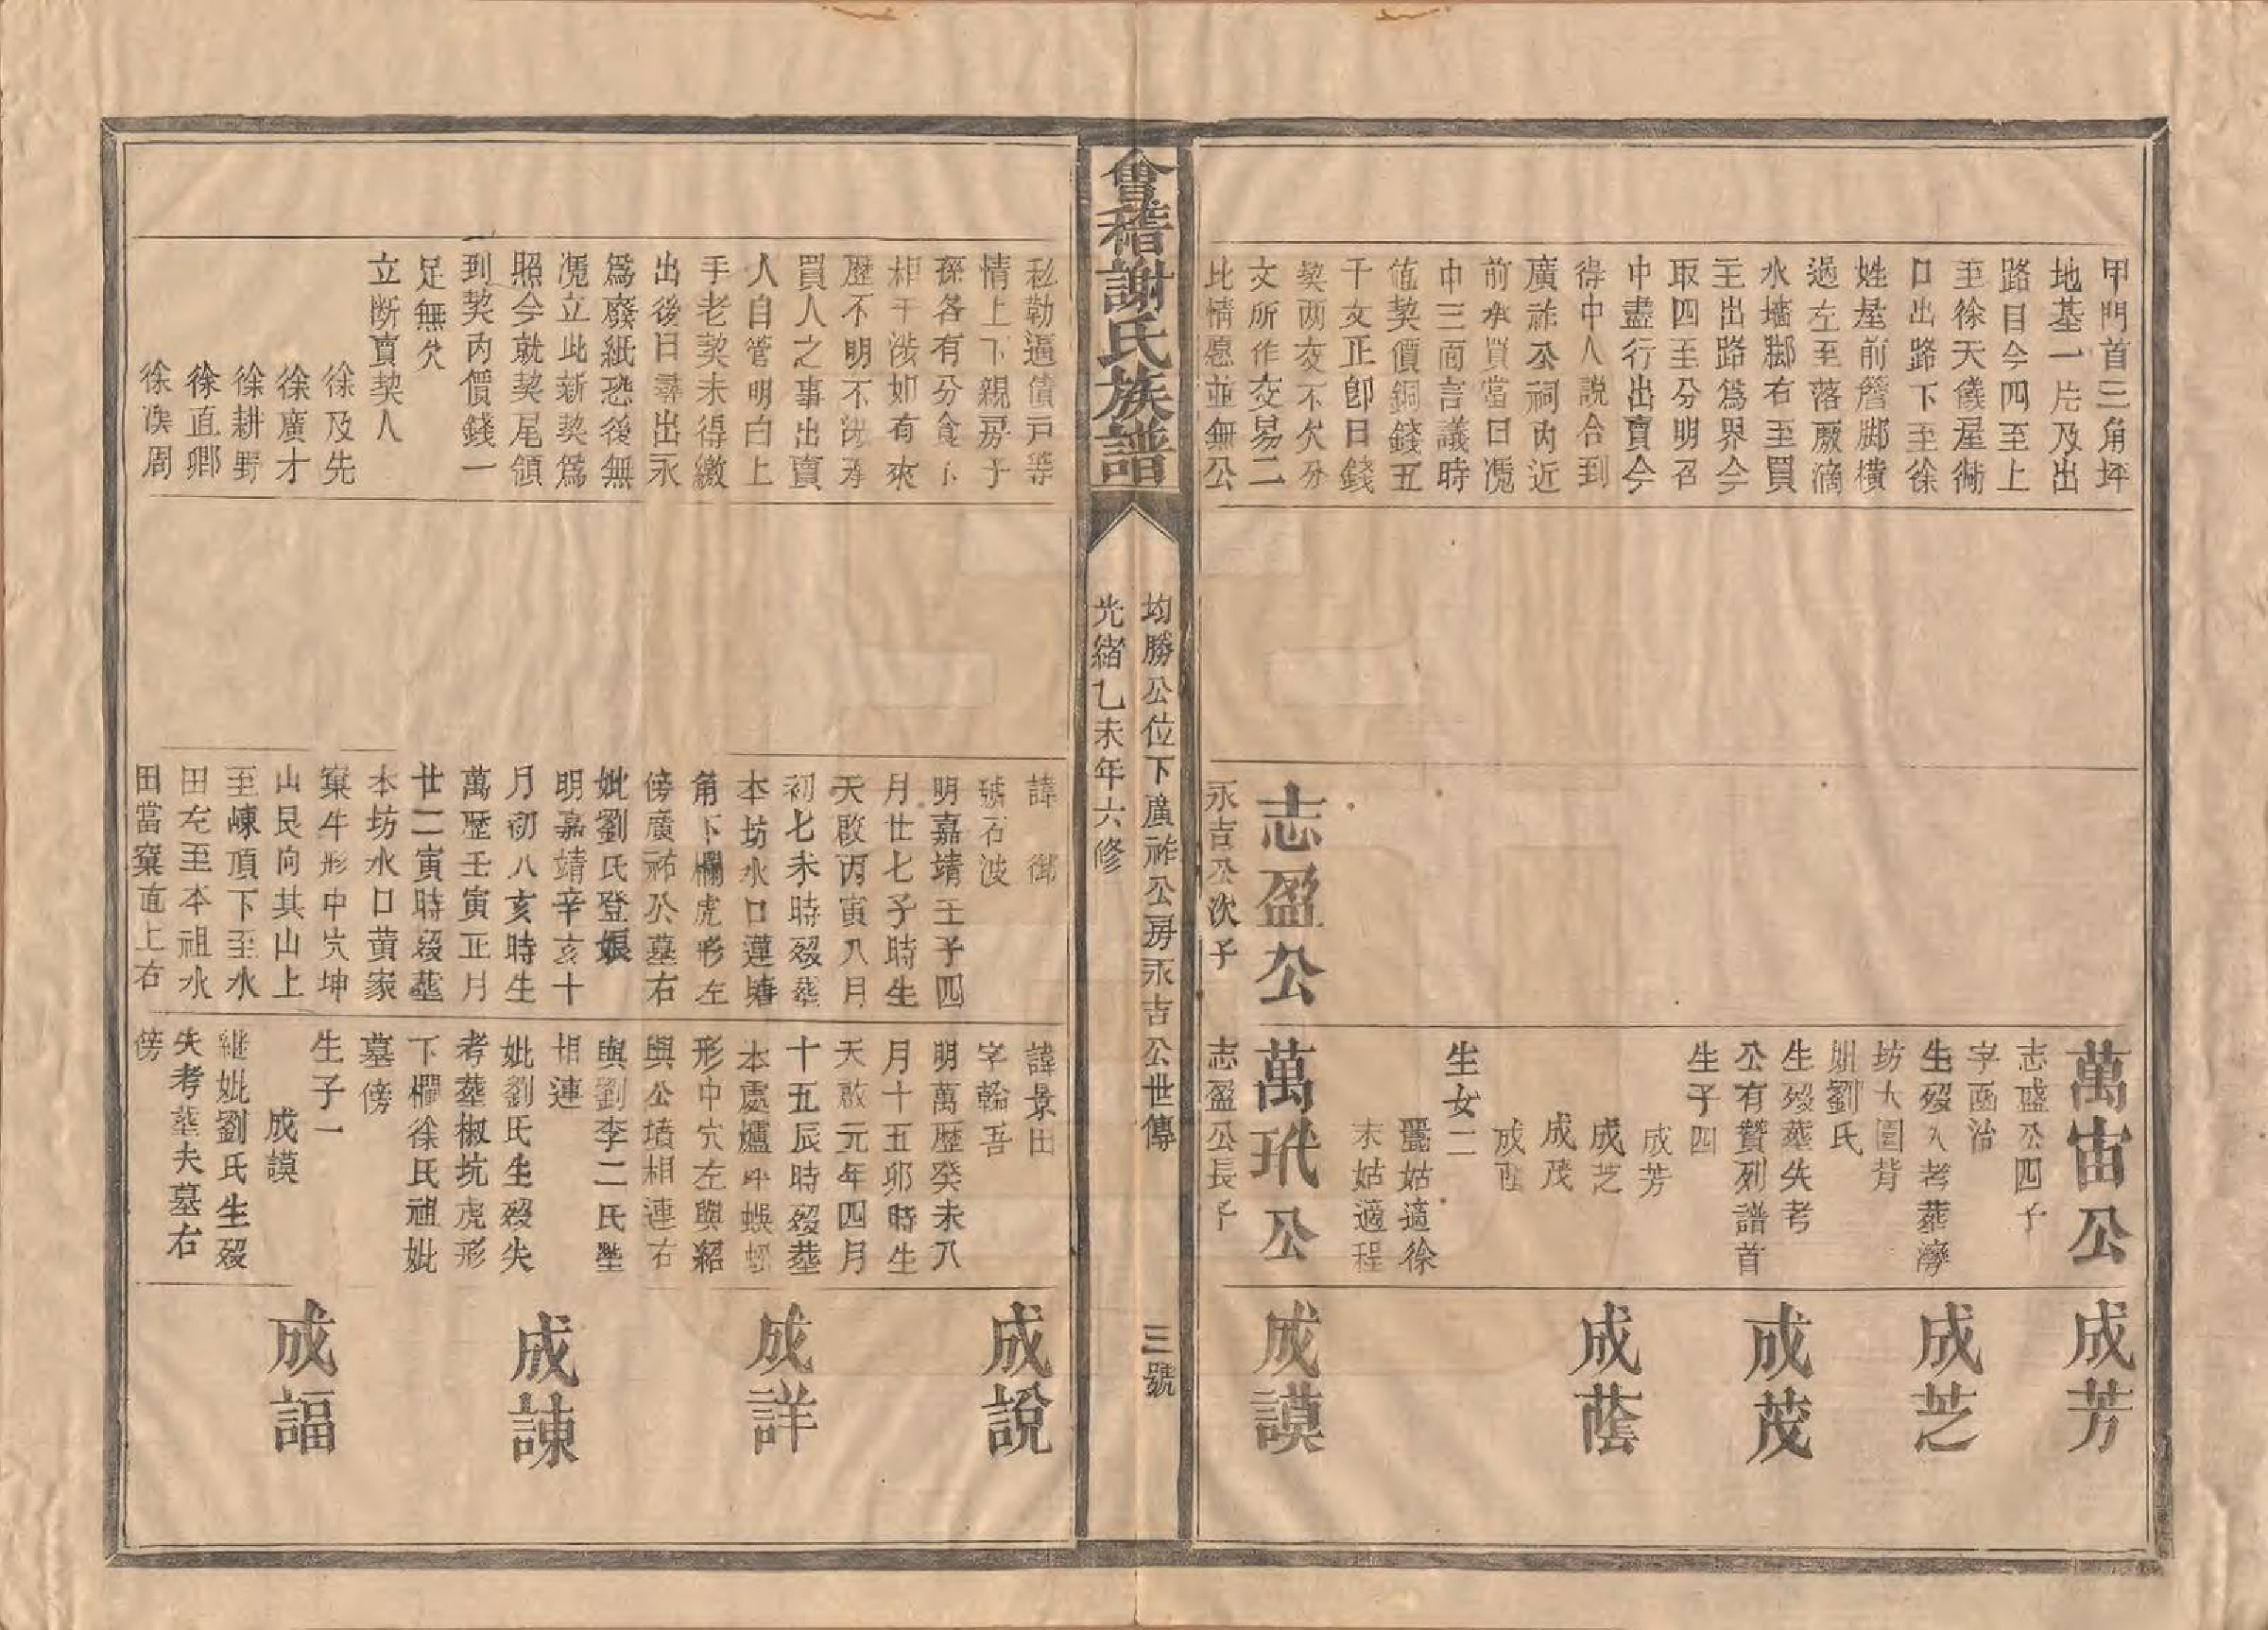 甲門首三角坪
地基一片及出
路目今四至上
至徐天儀屋衕
口出路下至徐
姓屋前簷脚橫
過左至落厫滴
水墻脚右至買
主出路爲界今
取四至分明召
中盡行出賣今
得中人説合到
廣祚公祠內近
前承買當日凴
中三面言議時
值契價銅錢五
千文正卽日錢
契兩交不欠分
文所作交易二
比情愿並無公
志盈公
永吉公次子
萬宙公
志盛公四子
字酉治
生歿久考葬
坊大園背
妣劉氏
生歿葬失考
公有贊列譜首
生子四
成芳
成芝
成茂
成蔭
生女二
姑適徐
末姑適程
萬玳公
志盈公長子
成芳
成芝
成茂
成蔭
成謨
會稽謝氏族譜
均勝公位下廣祚公房永吉公世傳
光緒乙未年六修
三號
私勒逼債戸準
情上下親房子
孫各有分食下
相干涉如有來
歷不明不涉承
買人之事出賣
人自管明白上
手老契未得繳
出後日尋出永
爲廢紙恐後無
凴立此新契爲
照今就契尾領
到契內價錢一
足無欠
立斷賣契人
徐及先
徐廣才
徐耕野
徐直卿
徐俁周
諱御
號石波
明嘉靖壬子四
月廿七子時生
天啟丙寅八月
初七未時歿葬
本坊水口蓮塘
角下欄虎形左
傍廣祚公墓右
妣劉氏登娘
明嘉靖辛亥十
月初八亥時生
萬歷壬寅正月
廿二寅時歿葬
本坊水口黄家
窠牛形中穴坤
山艮向其山上
至崠頂下至水
田左至本祖水
田當窠直上右
諱景田
字翰吾
明萬歷癸未八
月十五卯時生
天啟元年四月
十五辰時歿葬
本處爐坪蜈蚣
形中穴左與紹
與公墳相連右
與劉李二氏墊
相連
妣劉氏生歿失
考葬椒坑虎形
下欄徐氏祖妣
墓傍
生子一
成謨
継妣劉氏生歿
失考葬夫墓右
傍
成說
成詳
成諫
成諨